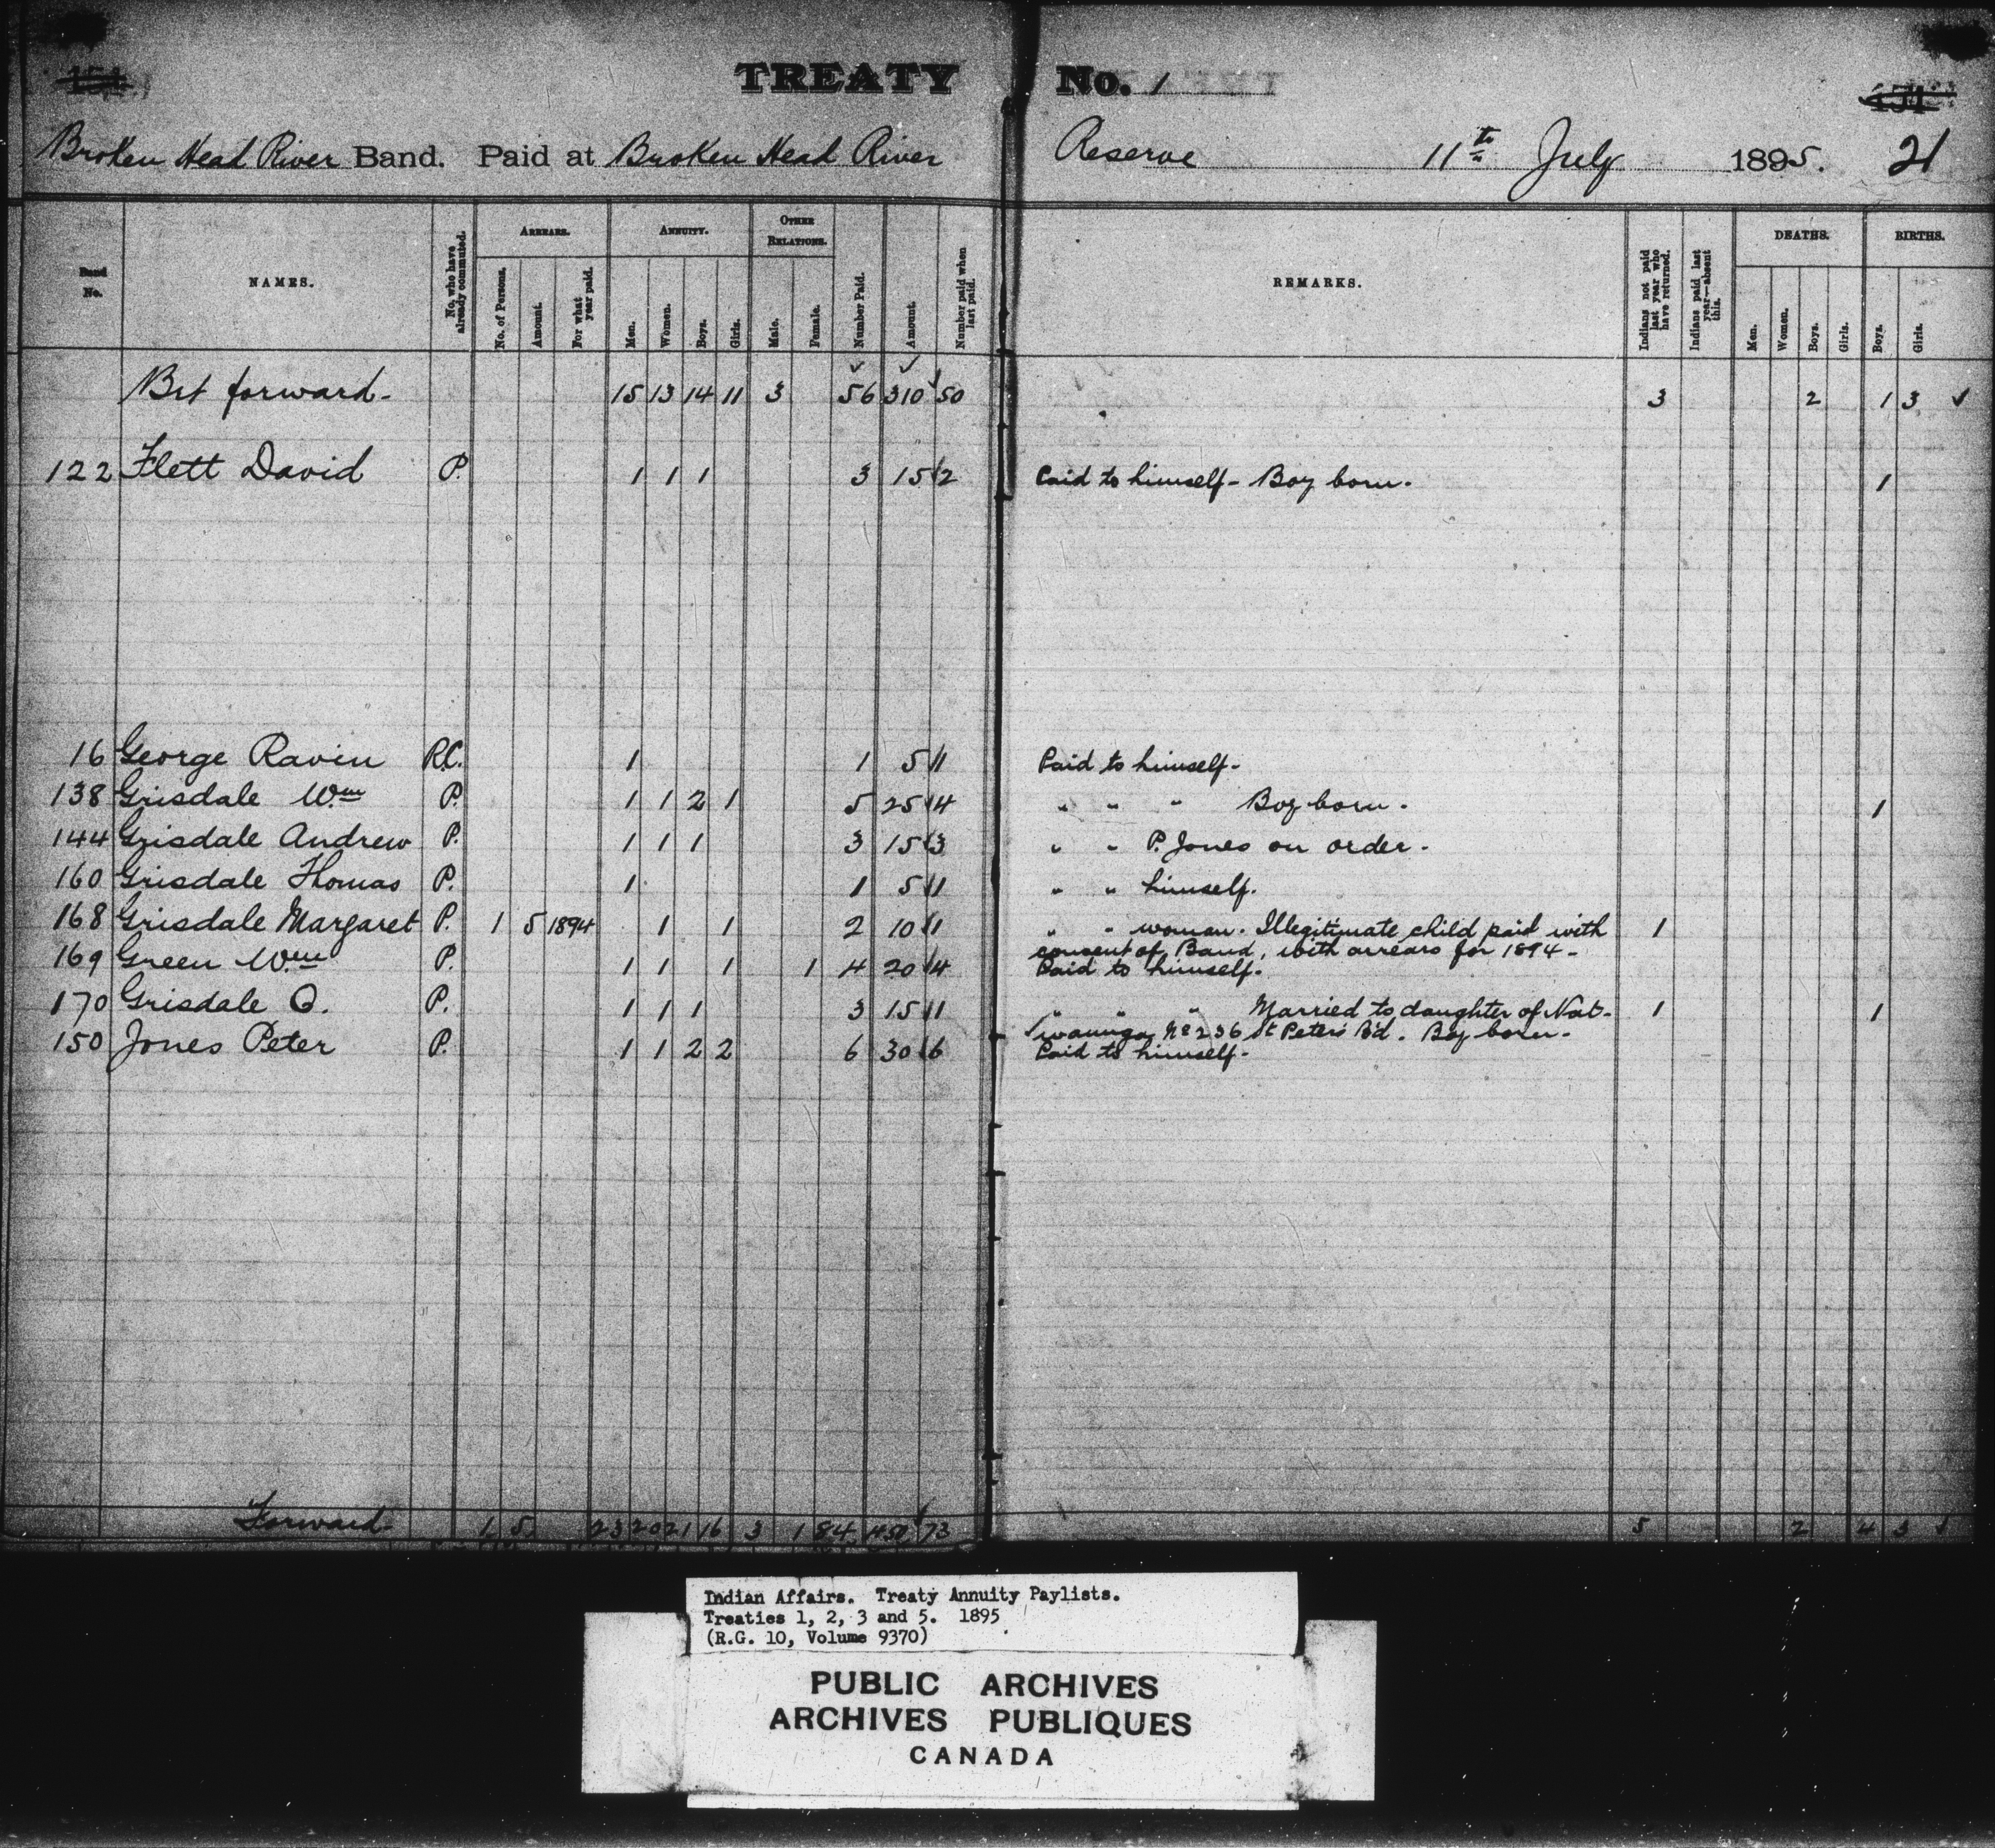 TREATY No. 1
Broken Head River Band. Paid at Broken Head River Reserve 11th July 1895. 21
Band No. NAMES. No. who have already commuted. ARREARS. No. of Persons. Amount. For what year paid. ANNUITY. Men. Women. Boys. Girls. OTHER RELATIONS. Male. Female. Number Paid. Amount. Number paid when last paid. REMARKS. Indians not paid last year who have returned. Indians paid last year—absent this. DEATHS. Men. Women. Boys. Girls. BIRTHS. Boys. Girls.
Brt forward- 15 13 14 11 3 56 310 50 3 2 1 3
122 Flett David P. 1 1 1 3 15 2 Paid to himself- Boy born. 1
16 George Ravin R.C. 1 1 5 1 Paid to himself-
138 Grisdale Wm P. 1 1 2 1 5 25 4 " " " Boy born. 1
144 Grisdale Andrew P. 1 1 1 3 15 3 " " P. Jones on order.
160 Grisdale Thomas P. 1 1 5 1 " " himself.
168 Grisdale Margaret P. 1 5 1894 1 1 2 10 1 " " woman. Illegitimate child paid with 1
consent of Band, with arrears for 1894-
169 Green Wm P. 1 1 1 1 4 20 4 Paid to himself.
170 Grisdale O. P. 1 1 1 3 15 1 " " " Married to daughter of Nat- 1 1
No 236 St Peter's Bd. Boy born.
150 Jones Peter P. 1 1 2 2 6 30 6 Paid to himself-
Forward- 1 5 23 20 21 16 3 1 84 450 73 5 2 4 3
Indian Affairs. Treaty Annuity Paylists.
Treaties 1, 2, 3 and 5. 1895
(R.G. 10, Volume 9370)
PUBLIC ARCHIVES
ARCHIVES PUBLIQUES
CANADA